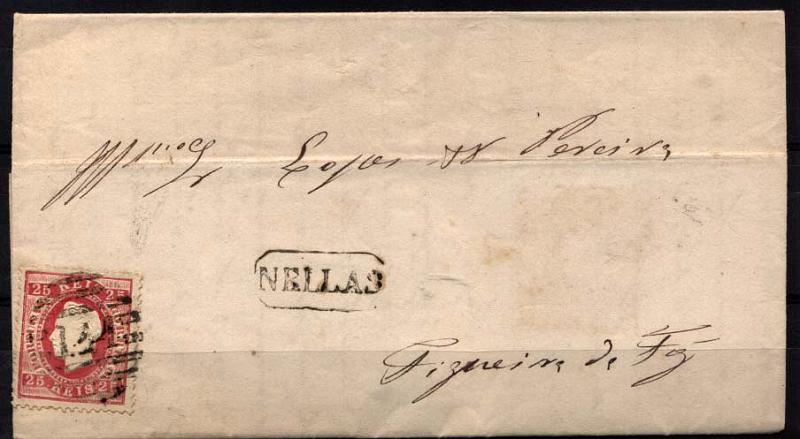 Illmos Snrs
Lopes & Pereira
NELLAS
25 REIS 25
14
25 REIS 25
Figueira da Foz